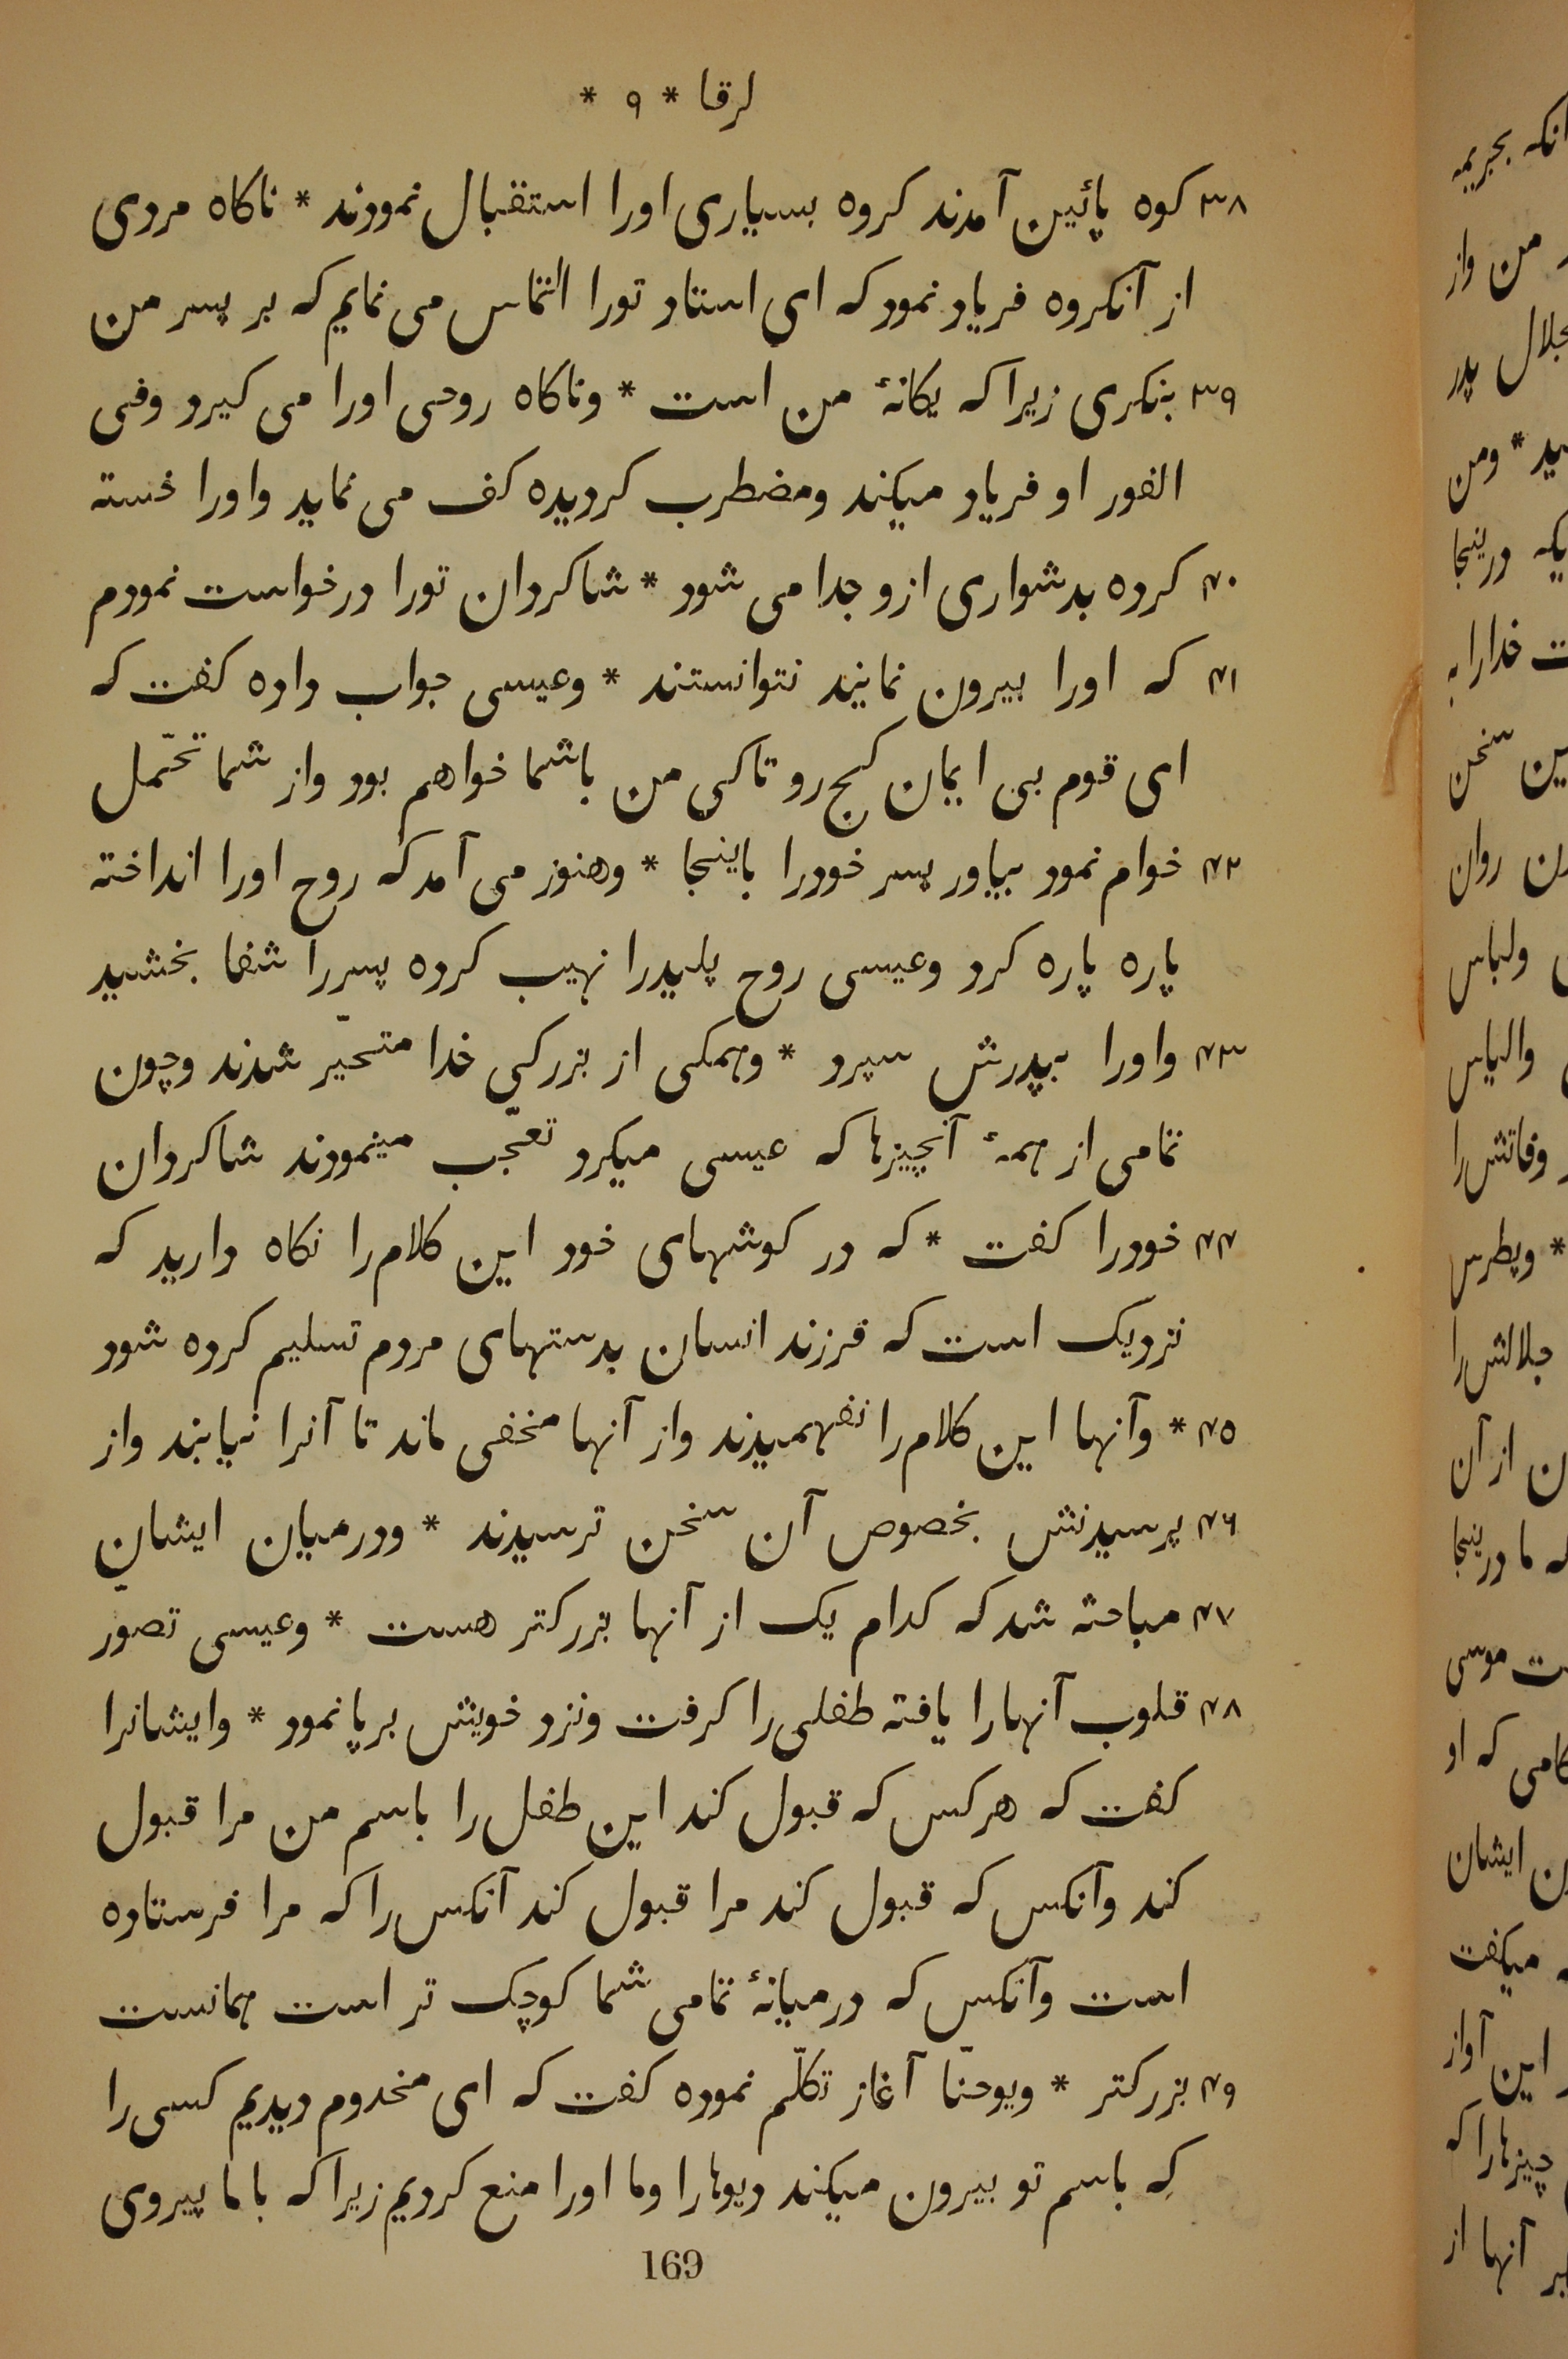 لوقا * ۹ *
۳۸ کوه پائین آمدند کروه بسیاری اورا استقبال نمودند * ناکاه مردی
از آنکروه فریاد نمود که ای استاد تورا التماس می نمایم که بر پسر من
۳۹ بنکری زیرا که یکانهٔ من است * وناکاه روحی اورا می کیرد وفی
الفور او فریاد میکند ومضطرب کردیده کف می نماید واورا خسته
۴۰ کرده بدشواری ازو جدا می شود * شاکردان تورا درخواست نمودم
۴۱ که اورا بیرون نمایند نتوانستند * وعیسی جواب داده کفت که
ای قوم بی ایمان کج رو تا کی من باشما خواهم بود واز شما تحمّل
۴۲ خوام نمود بیاور پسر خودرا باینجا * وهنوز می آمد که روح اورا انداخته
پاره پاره کرد وعیسی روح پلیدرا نهیب کرده پسررا شفا بخشید
۴۳ واورا بپدرش سپرد * وهمکی از بزرکی خدا متحیّر شدند وچون
تمامی از همهٔ آنچیزها که عیسی میکرد تعجّب مینمودند شاکردان
۴۴ خودرا کفت * که در کوشهای خود این کلام را نکاه دارید که
نزدیک است که فرزند انسان بدستهای مردم تسلیم کرده شود
۴۵ * وآنها این کلام را نفهمیدند واز آنها مخفی ماند تا آنرا نیابند واز
۴۶ پرسیدنش بخصوص آن سخن ترسیدند * ودرمیان ایشان
۴۷ مباحثه شد که کدام یک از آنها بزرکتر هست * وعیسی تصوّر
۴۸ قلوب آنهارا یافته طفلی را کرفت ونزد خویش بر پا نمود * وایشانرا
کفت که هرکس که قبول کند این طفل را باسم من مرا قبول
کند وآنکس که قبول کند مرا قبول کند آنکس را که مرا فرستاده
است وآنکس که درمیانهٔ تمامی شما کوچک تر است همانست
۴۹ بزرکتر * ویوحنّا آغاز تکلّم نموده کفت که ای مخدوم دیدیم کسی را
که باسم تو بیرون میکند دیوهارا وما اورا منع کردیم زیرا که باما پیروی
169